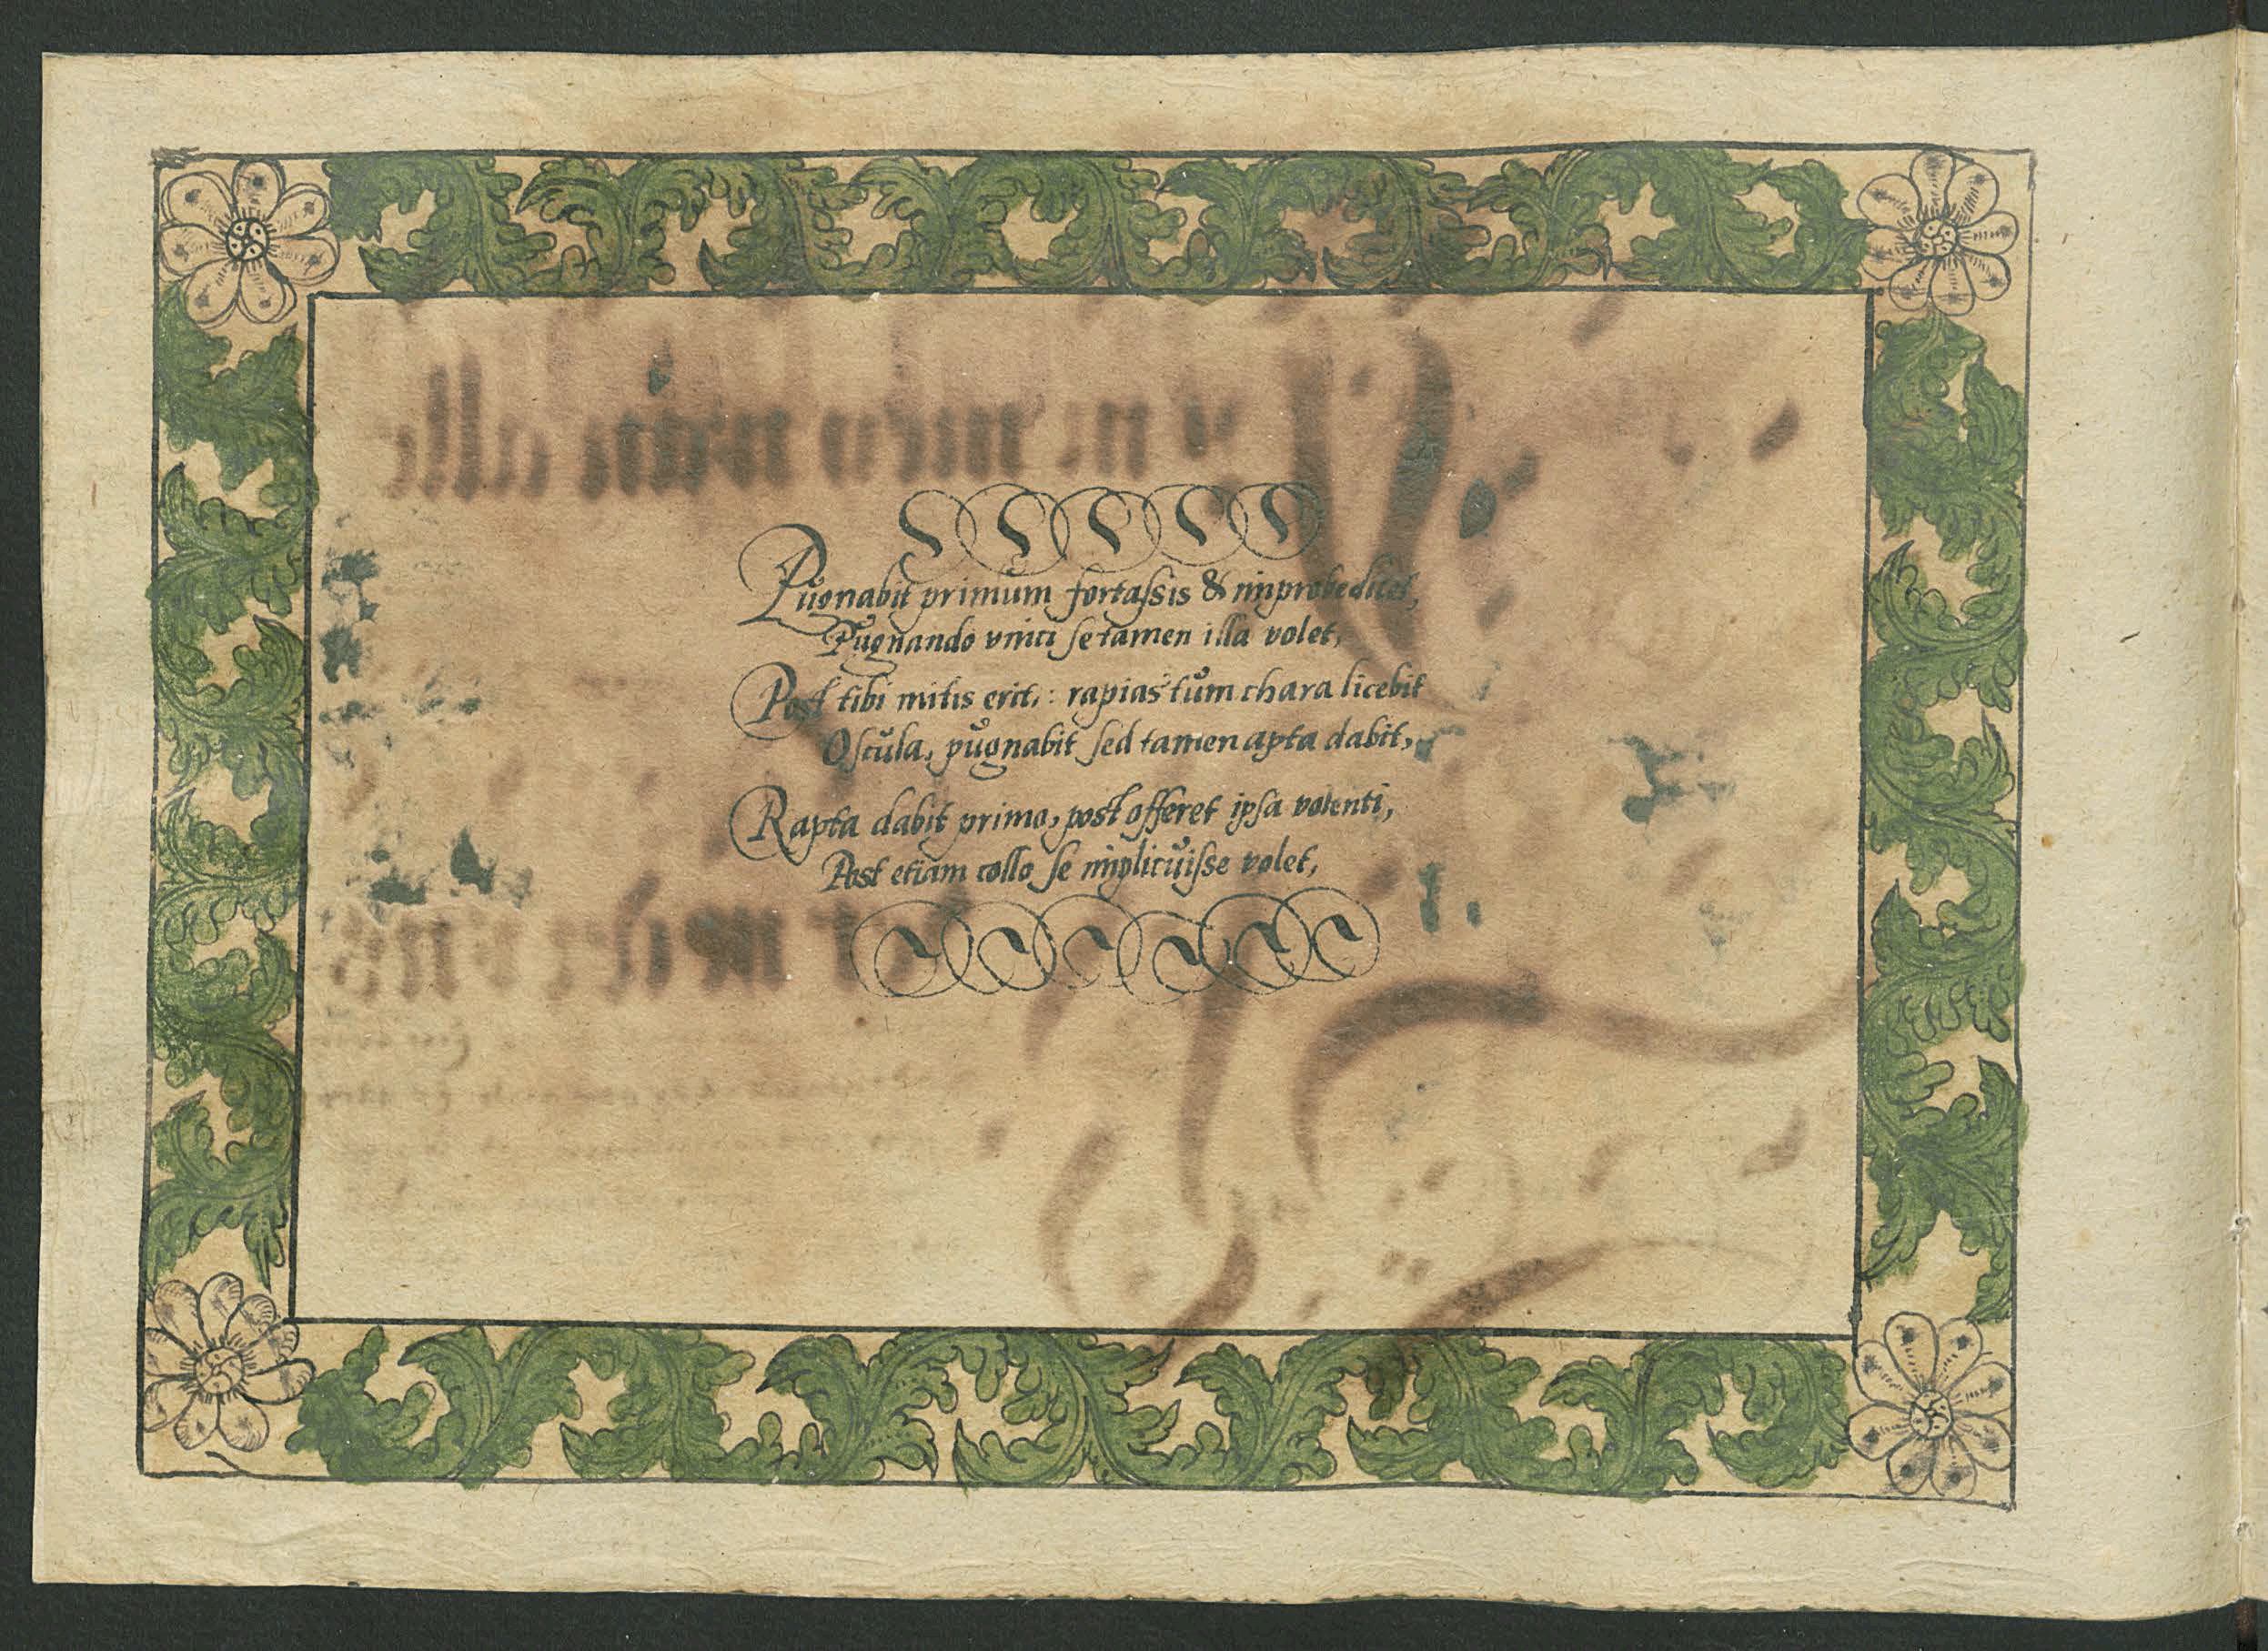 Pugnabit primum fortaſsis & improbe dicet,
Pugnando vinci ſe tamen illa volet,
Post tibi mitis erit,: rapias tum chara licebit
Oſcula, pugnabit ſed tamen apta dabit,
Rapta dabit primo, post offeret ipſa volenti,
Post etiam collo ſe implicuiſse volet,